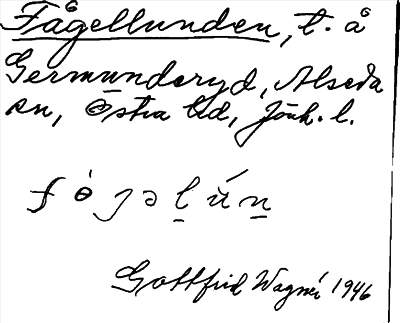 Fågellunden, t. å
Germunderyd, Alseda
sn, Östra hd, Jönk. l.
Gottfrid Wagnér 1946